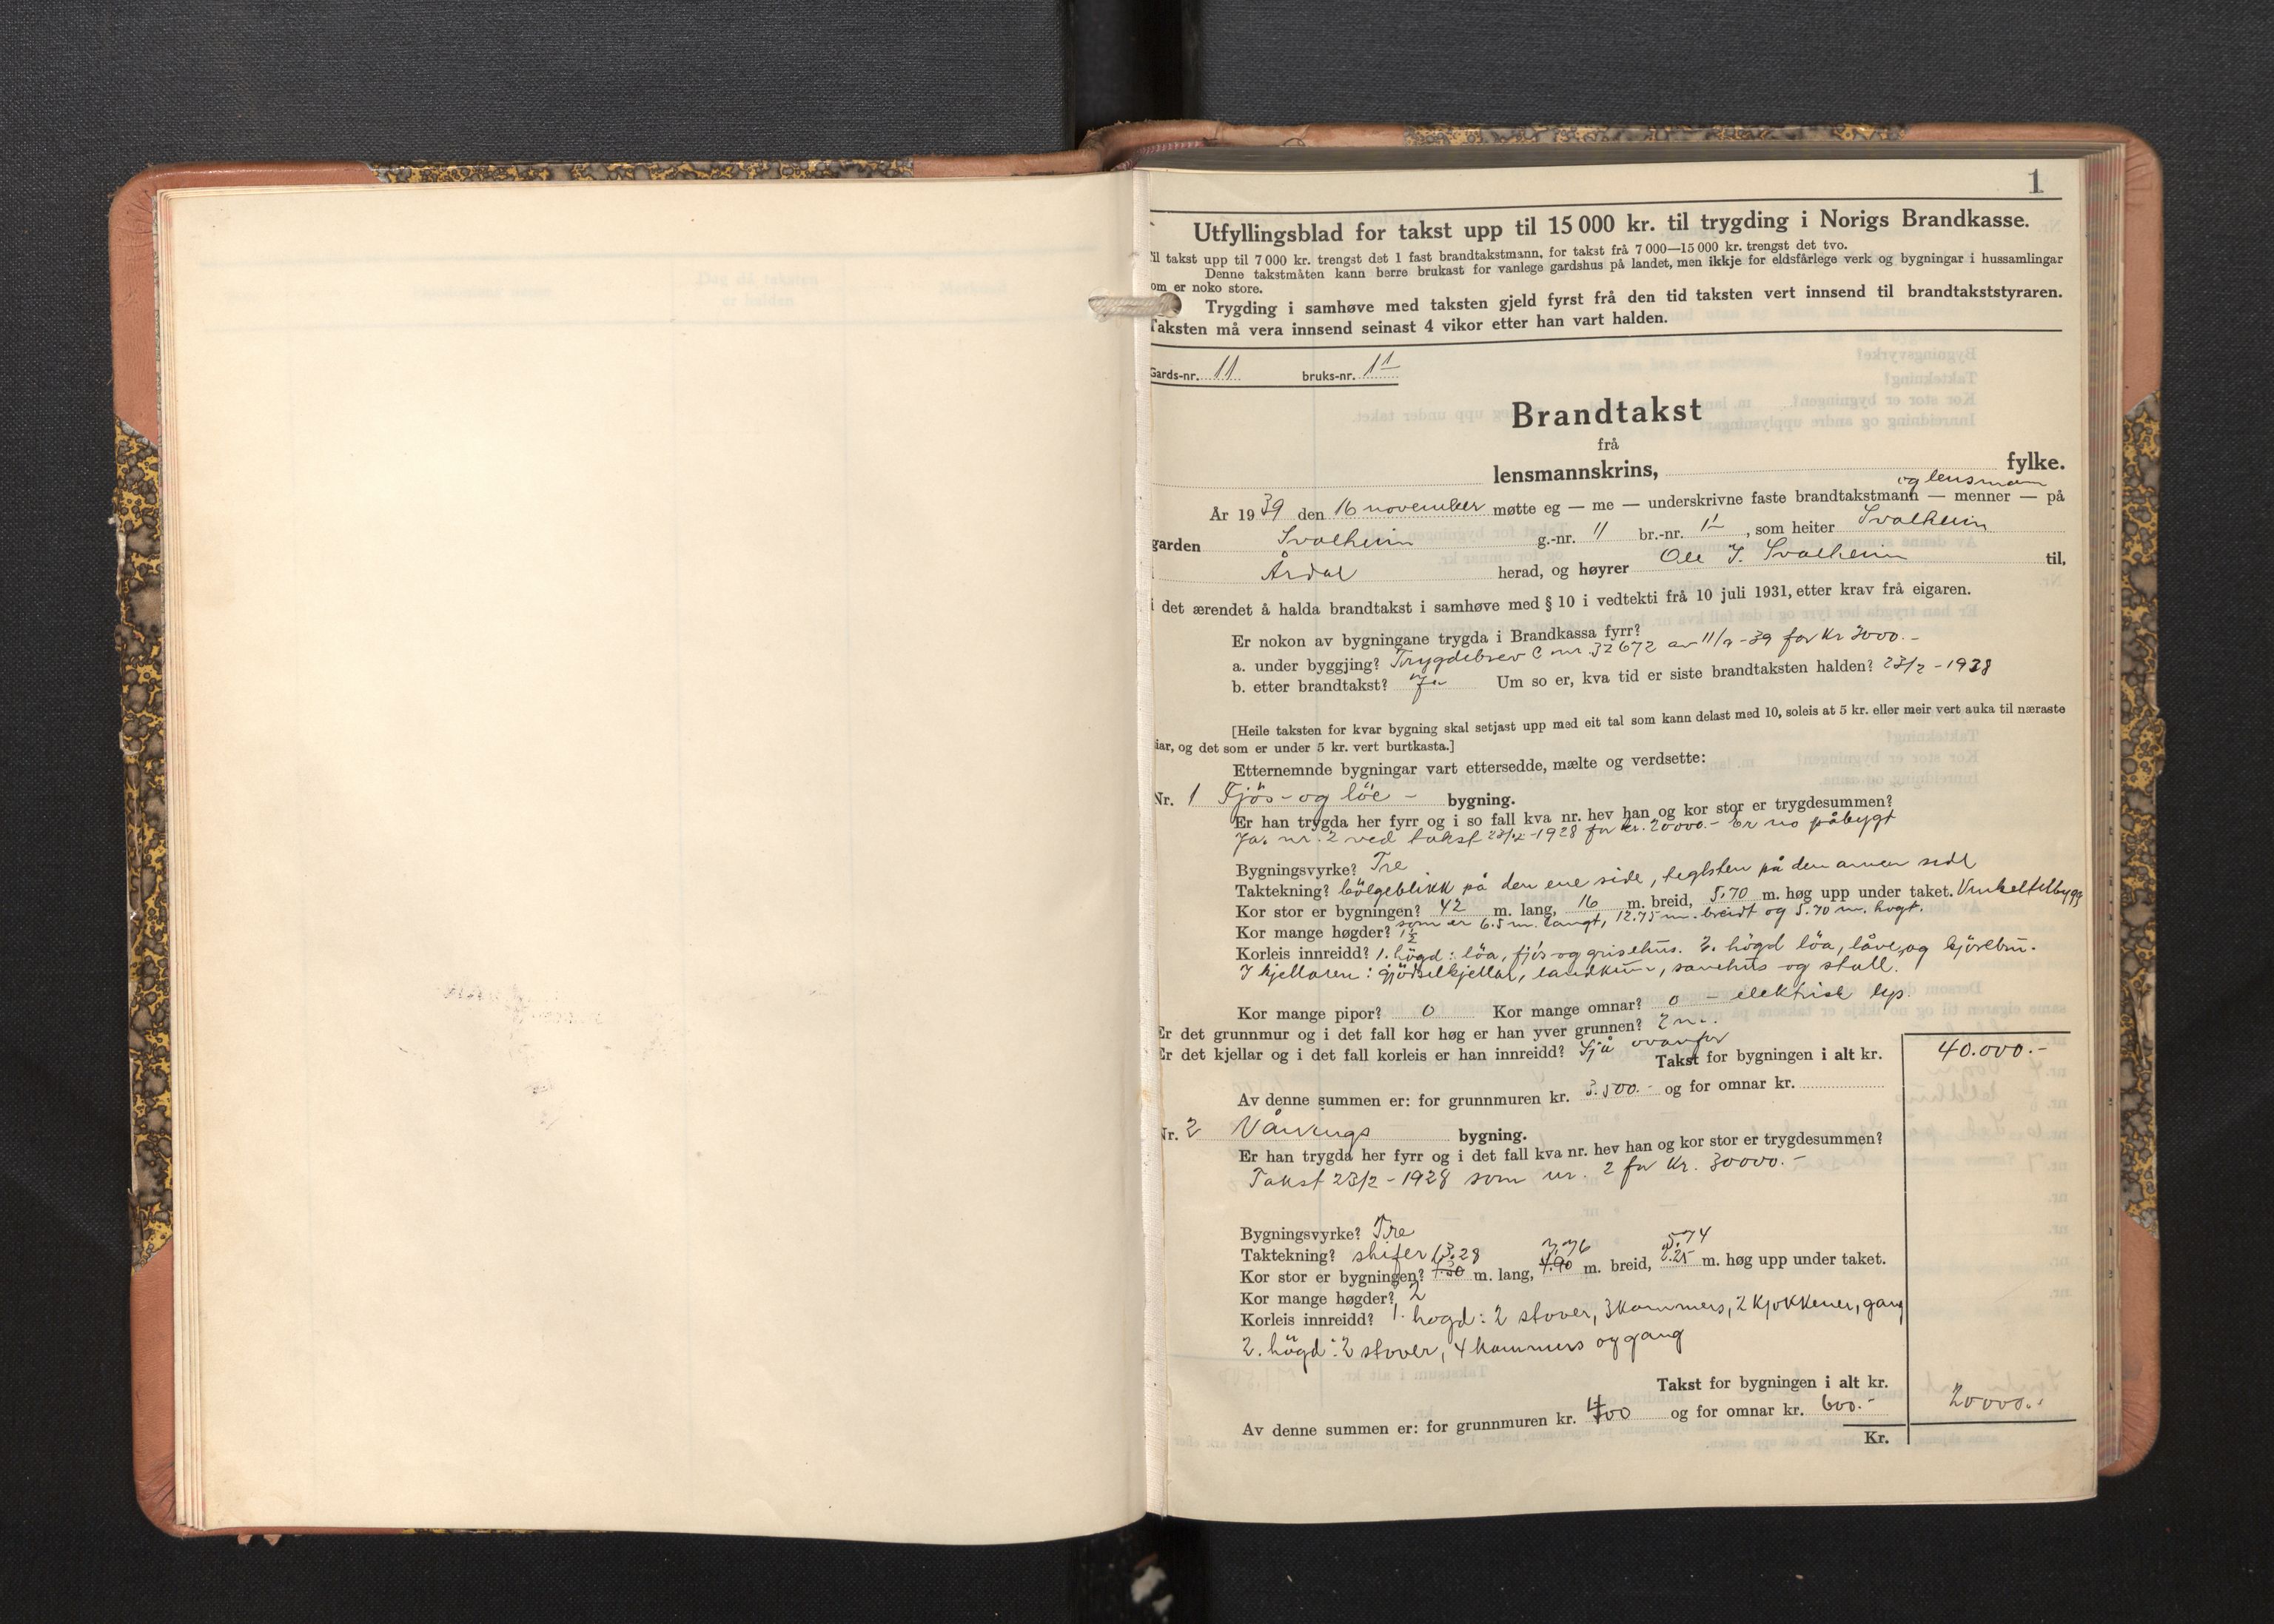 1
Utfyllingsblad for takst upp til 15 000 kr. til trygding i Norigs Brandkasse.
il takst upp til 7 000 kr. trengst det 1 fast brandtakstmann, for takst frå 7 000—15 000 kr. trengst det tvo.
Denne takstmåten kann berre brukast for vanlege gardshus på landet, men ikkje for eldsfårlege verk og bygningar i hussamlingar
om er noko store.
Trygding i samhøve med taksten gjeld fyrst frå den tid taksten vert innsend til brandtakststyraren.
Taksten må vera innsend seinast 4 vikor etter han vart halden.
Gards-nr. 11 bruks-nr. 1
Brandtakst
frå
lensmannskrins, fylke.
og lensmann
År 1939 den 16 november møtte eg — me — underskrivne faste brandtakstmann — menner — på
garden Svalheim g.-nr. 11 br.-nr. 1, som heiter Svalheim
Årdal herad, og høyrer Ole J. Svalheim til,
i det ærendet å halda brandtakst i samhøve med § 10 i vedtekti frå 10 juli 1931, etter krav frå eigaren.
Er nokon av bygningane trygda i Brandkassa fyrr?
a. under byggjing? Trygdebrev C nr. 32672 av 11/9-39 for kr 3000.-
b. etter brandtakst? Ja Um so er, kva tid er siste brandtaksten halden? 23/2-1928
[Heile taksten for kvar bygning skal setjast upp med eit tal som kann delast med 10, soleis at 5 kr. eller meir vert auka til næraste
iar, og det som er under 5 kr. vert burtkasta.]
Etternemnde bygningar vart ettersedde, mælte og verdsette:
Nr. 1 Fjös- og löe- bygning.
Er han trygda her fyrr og i so fall kva nr. hev han og kor stor er trygdesummen?
Ja. nr. 2 ved takst 23/2-1928 for kr. 20000.- Er no påbygt
Bygningsvyrke? Tre
Taktekning? bölgeblikk på den ene side, teglsten på den annen side
Kor stor er bygningen? 42 m. lang, 16 m. breid, 5.70 m. høg upp under taket. Vinkeltilbygg
som er 6.5 m. langt, 12.75 m. breidt og 5.70 m. högt.
Kor mange høgder? 1 1/2
Korleis innreidd? 1. högd: löa, fjös og grisehus. 2. högd löa, låve, og kjörebru.
I kjellaren: gjödselkjellar, landkum, sauehus og stall.
Kor mange pipor? 0 Kor mange omnar? 0 - elektrisk lys.
Er det grunnmur og i det fall kor høg er han yver grunnen? 2 m.
Er det kjellar og i det fall korleis er han innreidd? Sjå ovanfor
Takst for bygningen i alt kr. 40.000.-
Av denne summen er: for grunnmuren kr. 3.500.- og for omnar kr.
Nr. 2 Vånings bygning.
Er han trygda her fyrr og i det fall kva nr. hev han og kor stor er trygdesummen?
Takst 23/2-1928 som nr. 2 for kr. 30000.-
Bygningsvyrke? Tre
Taktekning? skifer
13.28 7.76 5.74
Kor stor er bygningen? m. lang, 4.90 m. breid, 6.25 m. høg upp under taket.
Kor mange høgder? 2
Korleis innreidd? 1. hogd: 2 stover, 3 kammers, 2 kjøkkener, gang
2. högd: 2 stover, 4 kammers og gang
Takst for bygningen i alt kr. 20000.-
Av denne summen er: for grunnmuren kr. 400 og for omnar kr. 600.-
Kr.